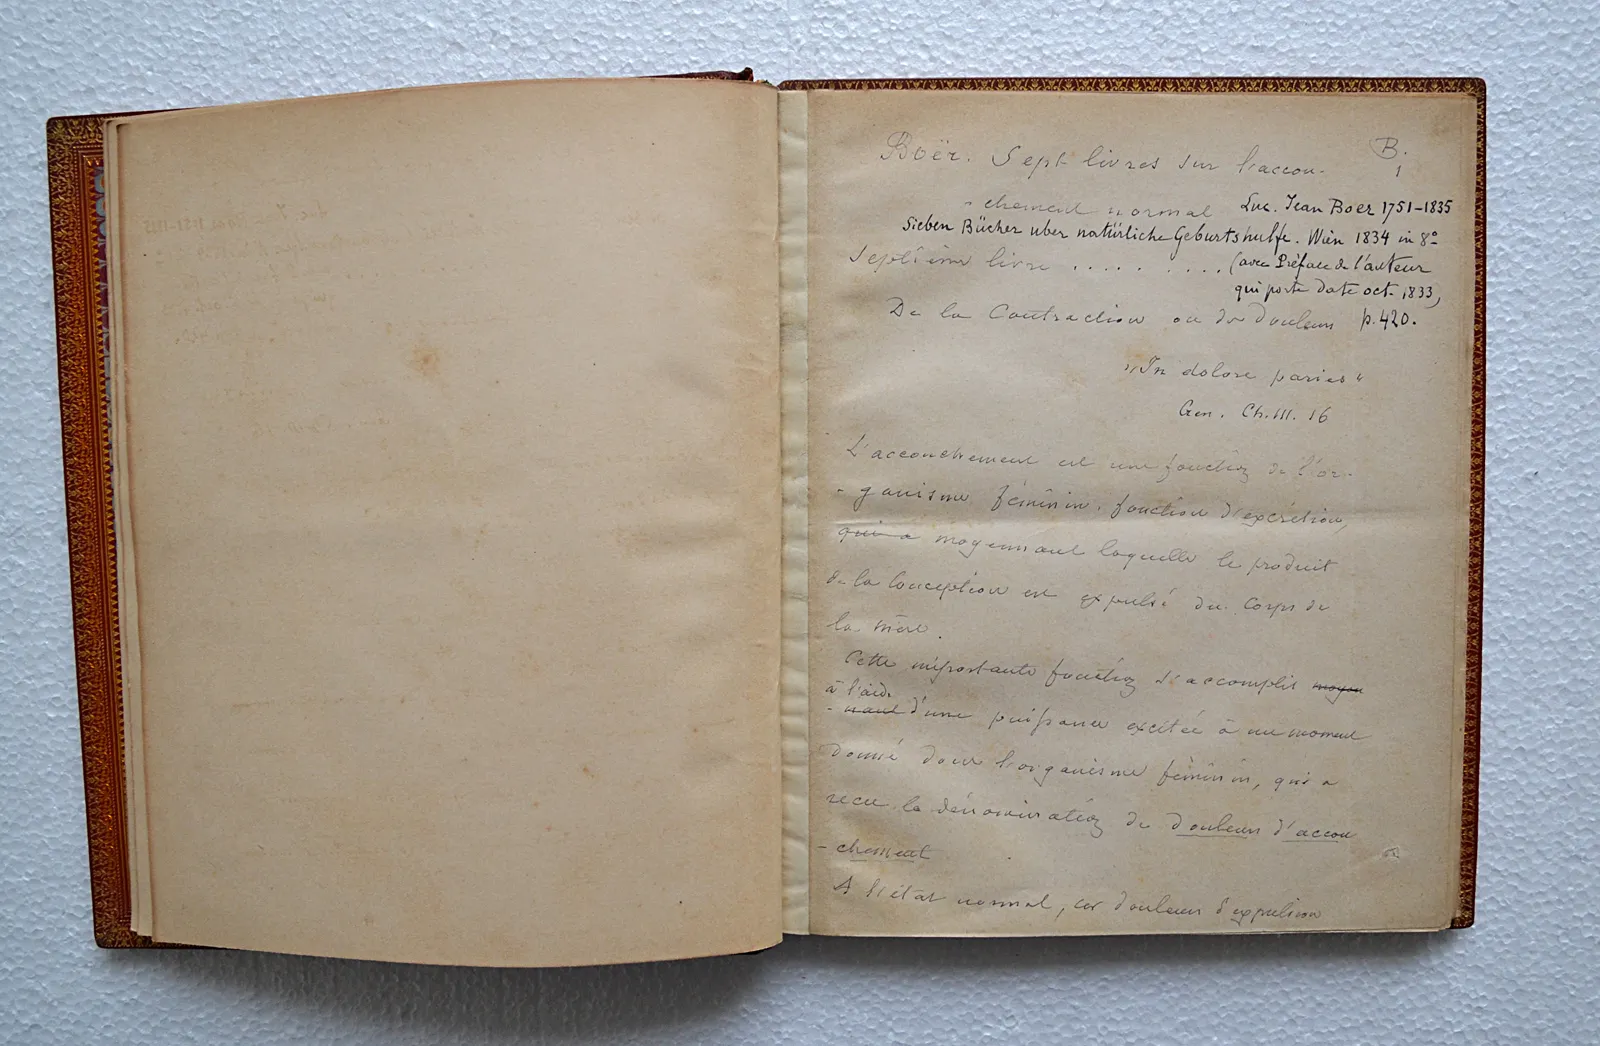 B.
1
Boër. Sept livres sur l'accou-
- chement normal Luc. Jean Boer 1751-1835
Sieben Bücher uber natürliche Geburtshulfe. Wien 1834 in 8º
Septième livre . . . . . . . . . (avec Préface de l'auteur
qui porte date oct. 1833,
De la Contraction ou des douleurs p. 420.
"In dolore paries"
Gen. Ch. III. 16
L'accouchement est une fonction de l'or-
- ganisme féminin, fonction d'excrétion,
qui a moyennant laquelle le produit
de la conception est expulsé du corps de
la mère.
Cette importante fonction s'accomplit moyen
à l'aide
- nant d'une puissance excitée à un moment
donné dans l'organisme féminin, qui a
recu la dénomination de douleurs d'accou
- chement
A l'état normal, ces douleurs d'expulsion